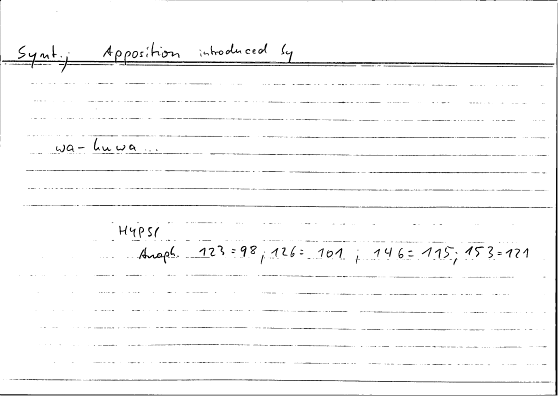 Synt.; Apposition introduced by
wa-huwa...
HYPSI
Anaph. 123=98; 126= 101 ; 146= 115; 153=121